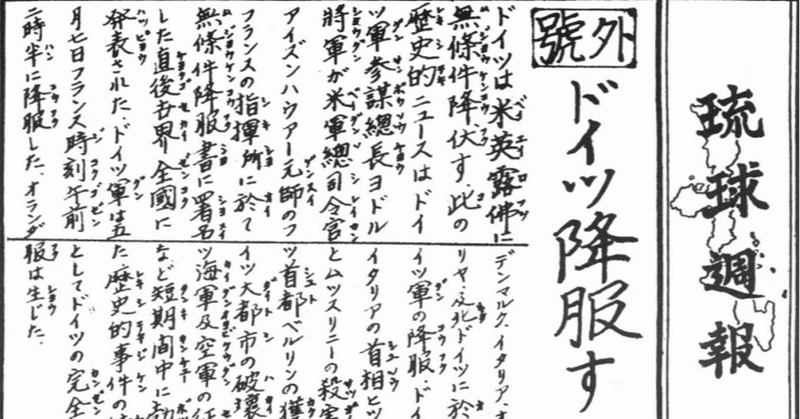 琉球週報
號外
ドイツ降服す
ドイツは米英露佛に
無條件降伏す、此の
歴史的ニュースはドイ
ツ軍参謀總長ヨドル
將軍が米軍總司令官
アイズンハウアー元師の
フランスの指揮所に於て
無條件降服書に署名
した直後世界全國に
発表された、ドイツ軍は五
月七日フランス時刻午前
二時半に降服した、オランダ
デンマルク、イタリア、オ
リヤ、及北ドイツに於
イツ軍の降服、ドイ
イタリアの首相ヒッ
とムツスリニーの殺害
ツ首都ベルリンの獲
イツ大都市の破壊
ツ海軍及空軍の征
など短期間中に勃
た、歴史的事件の
としてドイツの完全
報は生じた。